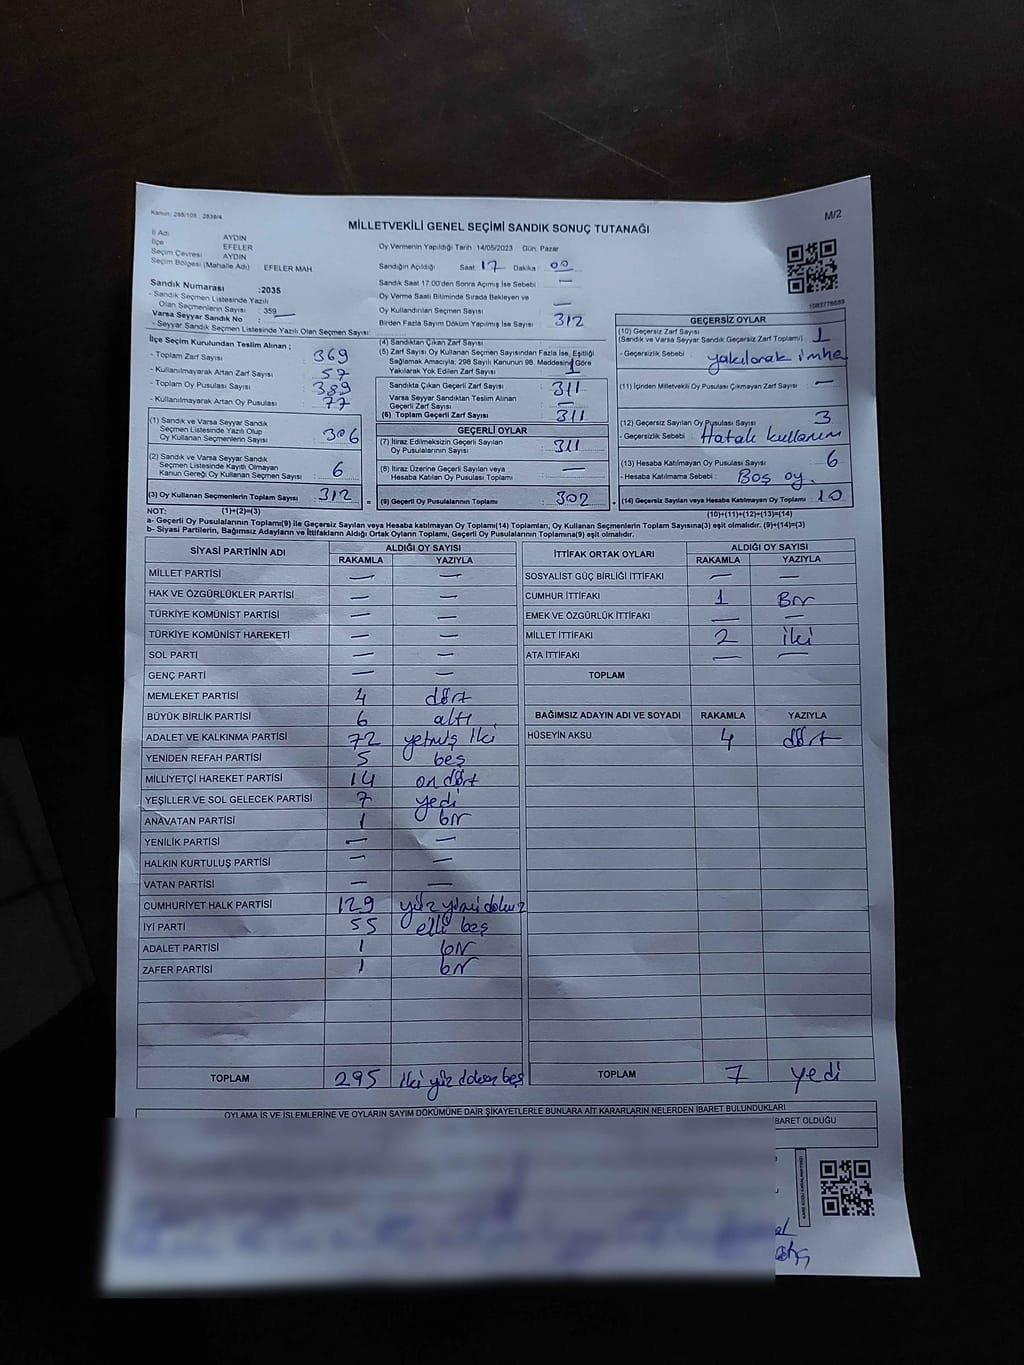 Kanun: 298/105 , 2839/4
M/2
MİLLETVEKİLİ GENEL SEÇİMİ SANDIK SONUÇ TUTANAĞI
İl Adı AYDIN
İlçe EFELER
Seçim Çevresi AYDIN
Seçim Bölgesi (Mahalle Adı) EFELER MAH
Sandık Numarası :2035
- Sandık Seçmen Listesinde Yazılı
Olan Seçmenlerin Sayısı : 359
Varsa Seyyar Sandık No : —
- Seyyar Sandık Seçmen Listesinde Yazılı Olan Seçmen Sayısı:
Oy Vermenin Yapıldığı Tarih :14/05/2023 Gün: Pazar
Sandığın Açıldığı Saat: 17 Dakika : 00
Sandık Saat 17:00'den Sonra Açılmış İse Sebebi : —
Oy Verme Saati Bitiminde Sırada Bekleyen ve
Oy Kullandırılan Seçmen Sayısı : —
Birden Fazla Sayım Döküm Yapılmış İse Sayısı : 312
1083776689
İlçe Seçim Kurulundan Teslim Alınan ;
- Toplam Zarf Sayısı : 369
- Kullanılmayarak Artan Zarf Sayısı : 57
- Toplam Oy Pusulası Sayısı : 389
- Kullanılmayarak Artan Oy Pusulası : 77
(1) Sandık ve Varsa Seyyar Sandık
Seçmen Listesinde Yazılı Olup
Oy Kullanan Seçmenlerin Sayısı : 306
(2) Sandık ve Varsa Seyyar Sandık
Seçmen Listesinde Kayıtlı Olmayan
Kanun Gereği Oy Kullanan Seçmen Sayısı : 6
(3) Oy Kullanan Seçmenlerin Toplam Sayısı : 312
(4) Sandıktan Çıkan Zarf Sayısı :
(5) Zarf Sayısı Oy Kullanan Seçmen Sayısından Fazla İse, Eşitliği
Sağlamak Amacıyla; 298 Sayılı Kanunun 98. Maddesine Göre
Yakılarak Yok Edilen Zarf Sayısı : 1
Sandıkta Çıkan Geçerli Zarf Sayısı : 311
Varsa Seyyar Sandıktan Teslim Alınan
Geçerli Zarf Sayısı : —
(6) Toplam Geçerli Zarf Sayısı : 311
GEÇERLİ OYLAR
(7) İtiraz Edilmeksizin Geçerli Sayılan
Oy Pusulalarının Sayısı : 311
(8) İtiraz Üzerine Geçerli Sayılan veya
Hesaba Katılan Oy Pusulası Sayısı : —
= (9) Geçerli Oy Pusulalarının Toplamı : 302
GEÇERSİZ OYLAR
(10) Geçersiz Zarf Sayısı
(Sandık ve Varsa Seyyar Sandık Geçersiz Zarf Toplamı) : 1
- Geçersizlik Sebebi : yakılarak imha
(11) İçinden Milletvekili Oy Pusulası Çıkmayan Zarf Sayısı : —
(12) Geçersiz Sayılan Oy Pusulası Sayısı : 3
- Geçersizlik Sebebi : Hatalı kullanım
(13) Hesaba Katılmayan Oy Pusulası Sayısı : 6
- Hesaba Katılmama Sebebi : Boş oy.
+ (14) Geçersiz Sayılan veya Hesaba Katılmayan Oy Toplamı : 10
NOT: (1)+(2)=(3)
(10)+(11)+(12)+(13)=(14)
a- Geçerli Oy Pusulalarının Toplamı(9) ile Geçersiz Sayılan veya Hesaba katılmayan Oy Toplamı(14) Toplamları, Oy Kullanan Seçmenlerin Toplam Sayısına(3) eşit olmalıdır. (9)+(14)=(3)
b- Siyasi Partilerin, Bağımsız Adayların ve İttifakların Aldığı Ortak Oyların Toplamı, Geçerli Oy Pusulalarının Toplamına(9) eşit olmalıdır.
SİYASİ PARTİNİN ADI ALDIĞI OY SAYISI
RAKAMLA YAZIYLA
MİLLET PARTİSİ — —
HAK VE ÖZGÜRLÜKLER PARTİSİ — —
TÜRKİYE KOMÜNİST PARTİSİ — —
TÜRKİYE KOMÜNİST HAREKETİ — —
SOL PARTİ — —
GENÇ PARTİ — —
MEMLEKET PARTİSİ 4 dört
BÜYÜK BİRLİK PARTİSİ 6 altı
ADALET VE KALKINMA PARTİSİ 72 yetmiş iki
YENİDEN REFAH PARTİSİ 5 beş
MİLLİYETÇİ HAREKET PARTİSİ 14 on dört
YEŞİLLER VE SOL GELECEK PARTİSİ 7 yedi
ANAVATAN PARTİSİ 1 bir
YENİLİK PARTİSİ — —
HALKIN KURTULUŞ PARTİSİ — —
VATAN PARTİSİ — —
CUMHURİYET HALK PARTİSİ 129 yüz yirmi dokuz
İYİ PARTİ 55 elli beş
ADALET PARTİSİ 1 bir
ZAFER PARTİSİ 1 bir
TOPLAM 295 iki yüz doksan beş
İTTİFAK ORTAK OYLARI ALDIĞI OY SAYISI
RAKAMLA YAZIYLA
SOSYALİST GÜÇ BİRLİĞİ İTTİFAKI — —
CUMHUR İTTİFAKI 1 Bir
EMEK VE ÖZGÜRLÜK İTTİFAKI — —
MİLLET İTTİFAKI 2 iki
ATA İTTİFAKI — —
TOPLAM
BAĞIMSIZ ADAYIN ADI VE SOYADI RAKAMLA YAZIYLA
HÜSEYİN AKSU 4 dört
TOPLAM 7 yedi
OYLAMA İŞ VE İŞLEMLERİNE VE OYLARIN SAYIM DÖKÜMÜNE DAİR ŞİKAYETLERLE BUNLARA AİT KARARLARIN NELERDEN İBARET BULUNDUKLARI
İBARET OLDUĞU